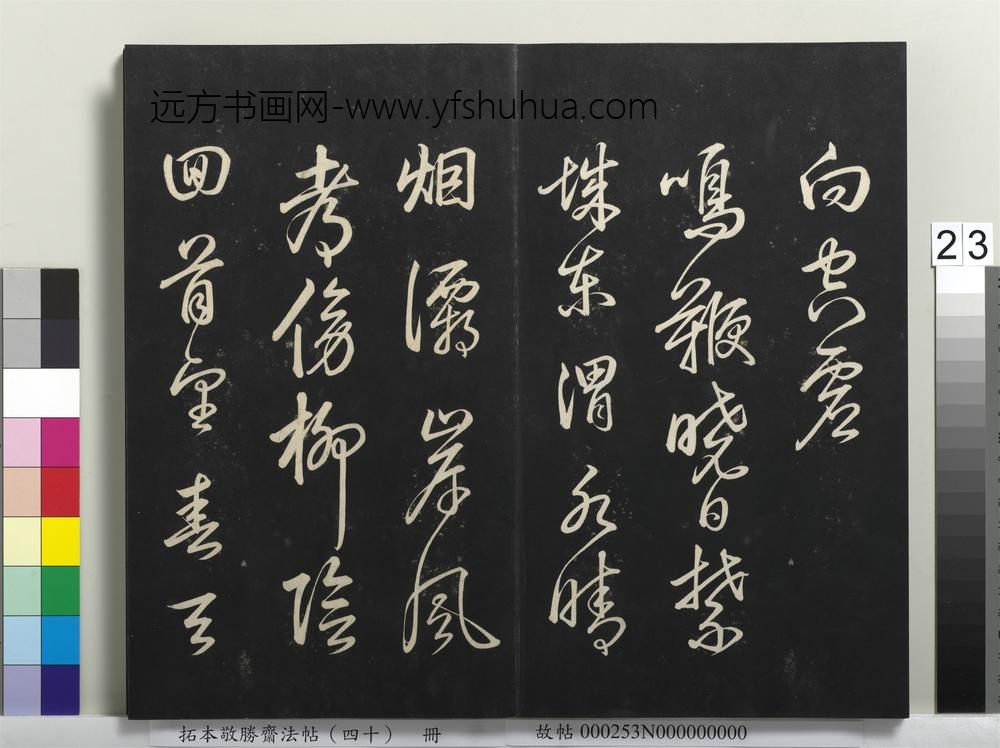 远方书画网-www.yfshuhua.com
向空虚
鳴鞭曉日禁
城东渭水晴
烟灞岸風
都傍柳陰
回首望春天
23
拓本敬勝齋法帖（四十） 冊
故帖 000253N000000000